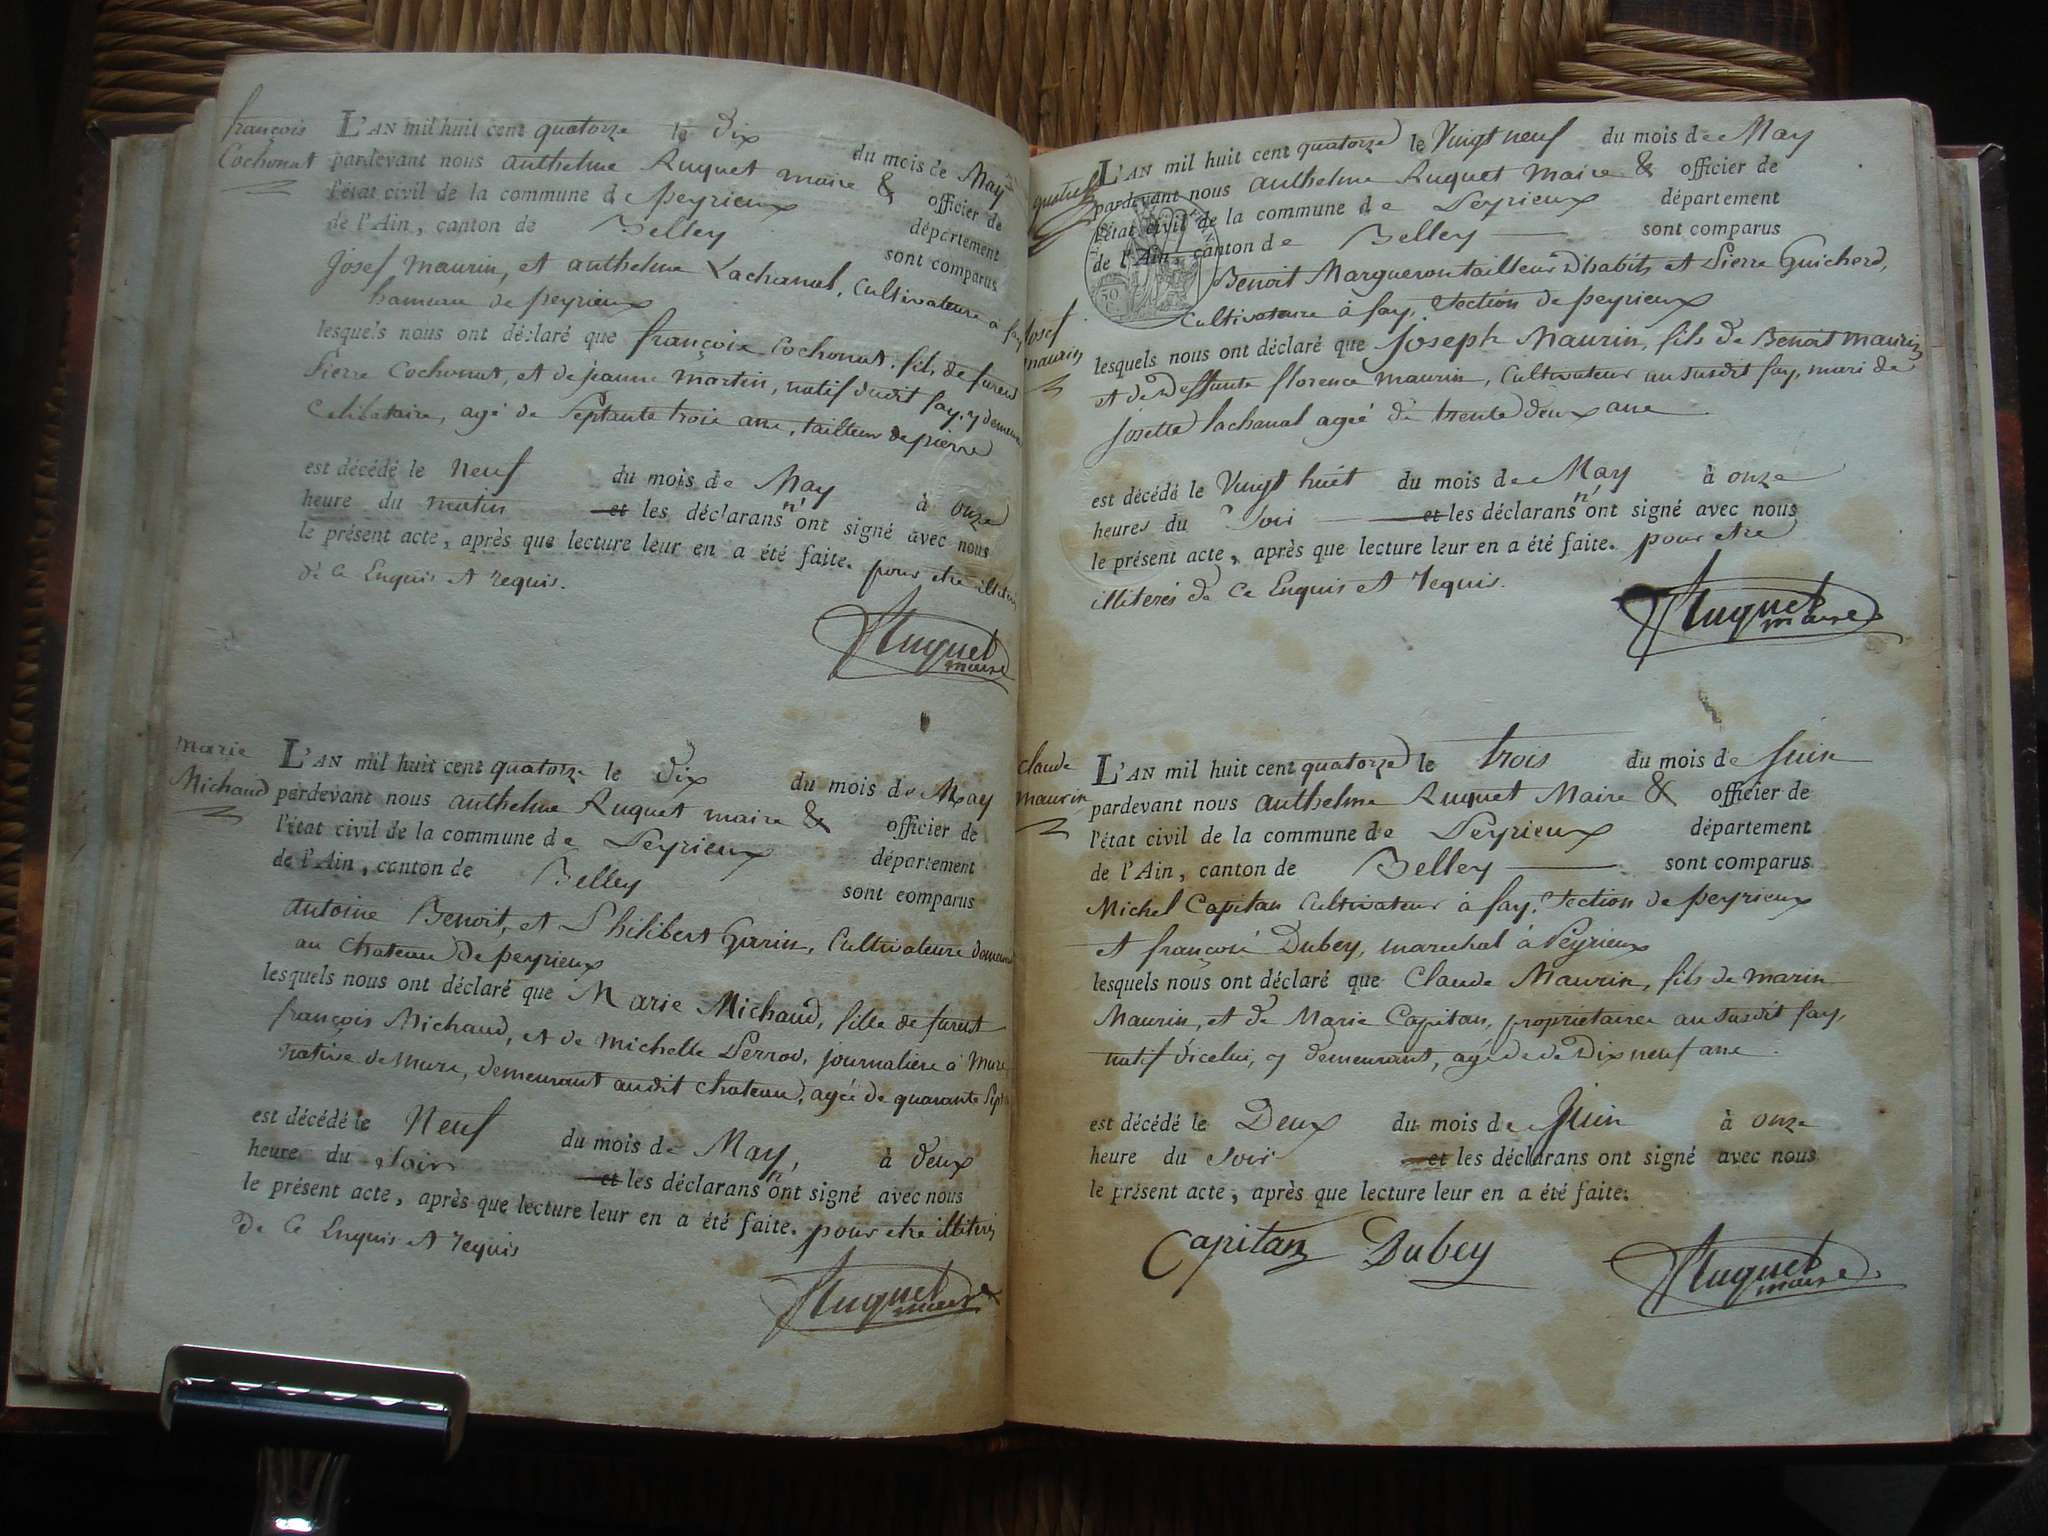 françois
Cochonat
L'AN mil huit cent quatorze le dix du mois de May
pardevant nous anthelme Ruquet maire & officier de
l'état civil de la commune de peyrieux département
de l'Ain, canton de Belley sont comparus
Josef maurin, et anthelme Lachanal, Cultivateurs à fay
hameau de peyrieux
lesquels nous ont déclaré que françois Cochonat, fils de fureut
Pierre Cochonat, et de jeanne martin, natif dudit fay, y demeurant
Celibataire, agé de Septante trois ans, tailleur de pierre
est décédé le Neuf du mois de May à onze
heure du matin et les déclarans n'ont signé avec nous
le présent acte, après que lecture leur en a été faite. pour etre illiterés
de Ce Enquis et requis.
Ruquet
maire
marie
Michaud
L'AN mil huit cent quatorze le dix du mois de May
pardevant nous anthelme Ruquet maire & officier de
l'état civil de la commune de Peyrieux département
de l'Ain, canton de Belley sont comparus
antoine Benoit, et Philibert Garin, Cultivateurs demeurant
au chateau de peyrieux
lesquels nous ont déclaré que Marie Michaud, fille de fureut
françois Michaud, et de Michelle Perrod, journaliere à Mure
native de Mure, demeurant audit chateau, agée de quarante Sept
est décédé le Neuf du mois de May, à deux
heure du Soir et les déclarans n'ont signé avec nous
le présent acte, après que lecture leur en a été faite. pour etre illiterés
de Ce Enquis et requis
Ruquet
maire
quatre
Josef
maurin
L'AN mil huit cent quatorze le Vingt neuf du mois de May
pardevant nous anthelme Ruquet Maire & officier de
l'état civil de la commune de Peyrieux département
de l'Ain, canton de Belley sont comparus
Benoit Margueron tailleur D'habits et Pierre Guicherd,
Cultivateurs à fay, Section de peyrieux
lesquels nous ont déclaré que Joseph Maurin, fils de Benoit maurin
et de Deffunte florence maurin, Cultivateur au susdit fay, mari de
josette lachanal agée de trente deux ans
est décédé le Vingt huit du mois de May à onze
heures du Soir et les déclarans n'ont signé avec nous
le présent acte, après que lecture leur en a été faite. pour etre
illiterés de Ce Enquis et requis.
Ruquet
maire
claude
maurin
L'AN mil huit cent quatorze le trois du mois de Juin
pardevant nous anthelme Ruquet Maire & officier de
l'état civil de la commune de Peyrieux département
de l'Ain, canton de Belley sont comparus
Michel Capitan Cultivateur à fay, Section de peyrieux
et françois Dubey, marechal à Peyrieux
lesquels nous ont déclaré que Claude Maurin, fils de marin
Maurin, et de Marie Capitan, proprietaires au susdit fay,
natif dicelui, y demeurant, agé de de Dix neuf ans
est décédé le Deux du mois de Juin à onze
heure du Soir et les déclarans ont signé avec nous
le présent acte, après que lecture leur en a été faite.
Capitan Dubey
Ruquet
maire